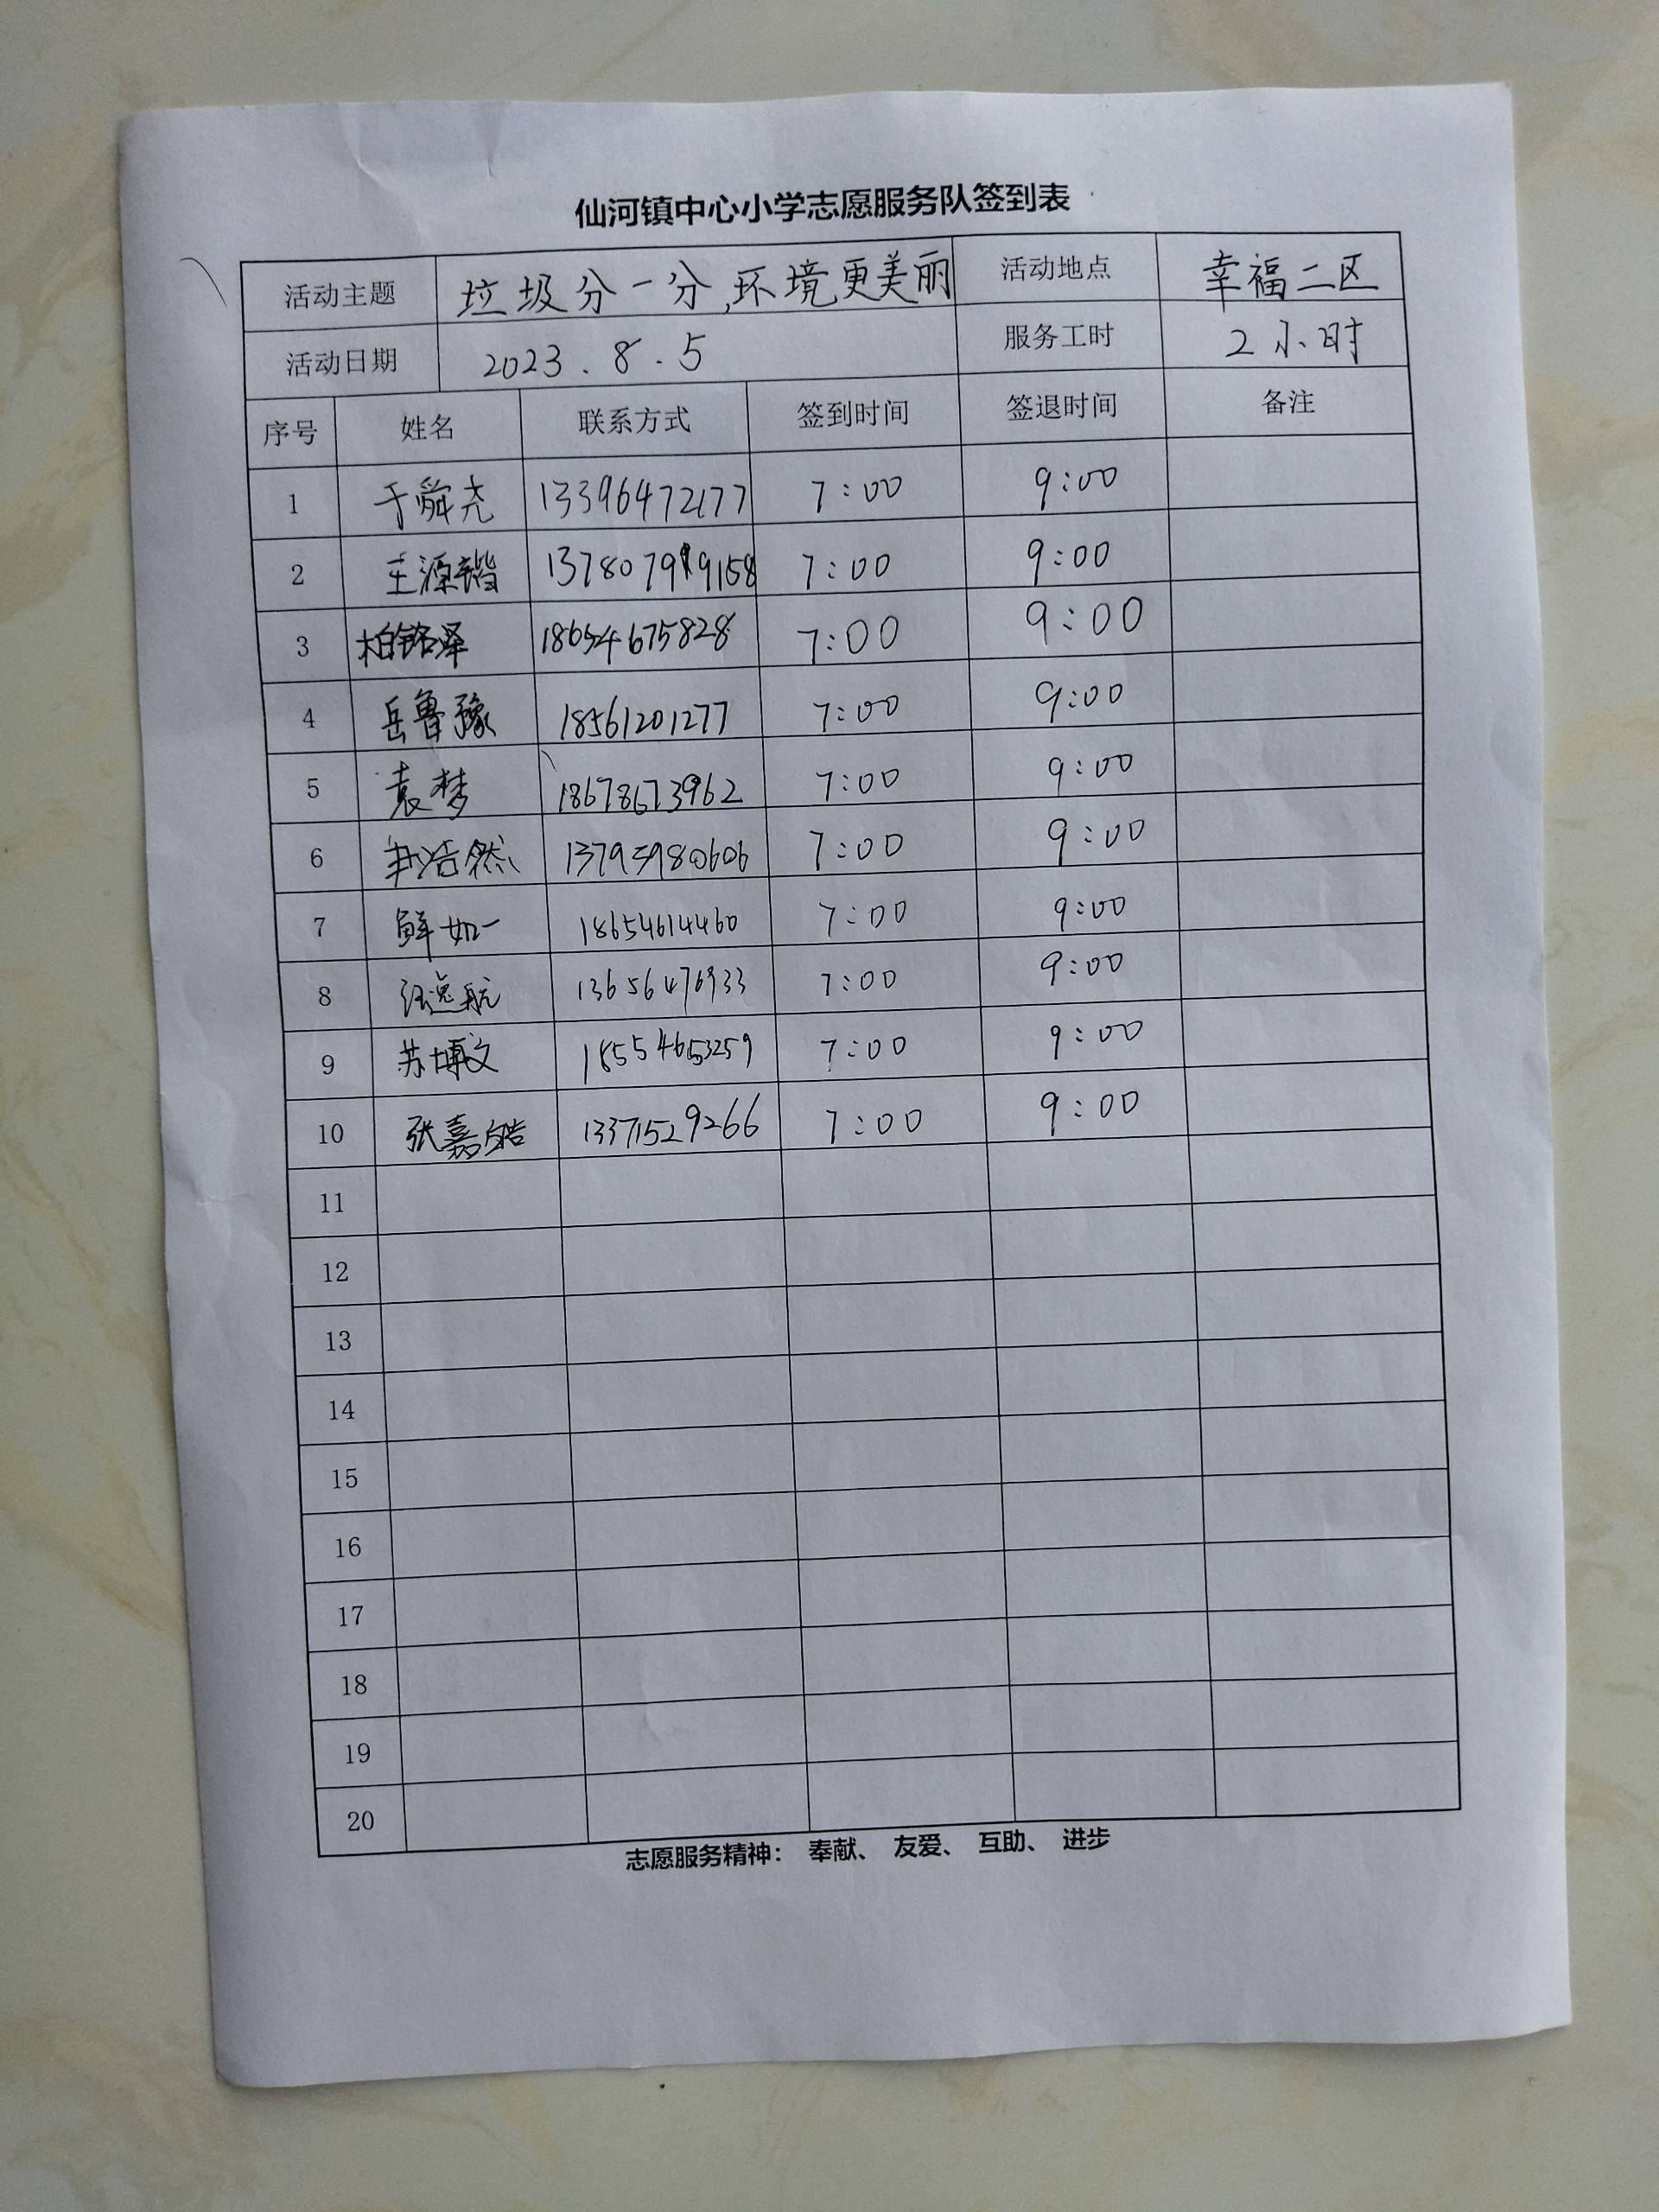 仙河镇中心小学志愿服务队签到表
活动主题 垃圾分一分,环境更美丽 活动地点 幸福二区
活动日期 2023.8.5 服务工时 2小时
序号 姓名 联系方式 签到时间 签退时间 备注
1 于舜尧 13396472177 7:00 9:00
2 王源锴 7:00 9:00
3 柏铭泽 18654675828 7:00 9:00
4 岳鲁豫 18561201277 7:00 9:00
5 袁梦 18678673962 7:00 9:00
6 浩然 13793980606 7:00 9:00
7 鲜如一 18654614460 7:00 9:00
8 逸航 13656476933 7:00 9:00
9 苏博文 18554653259 7:00 9:00
10 张嘉皓 13371529266 7:00 9:00
11
12
13
14
15
16
17
18
19
20
志愿服务精神: 奉献、 友爱、 互助、 进步